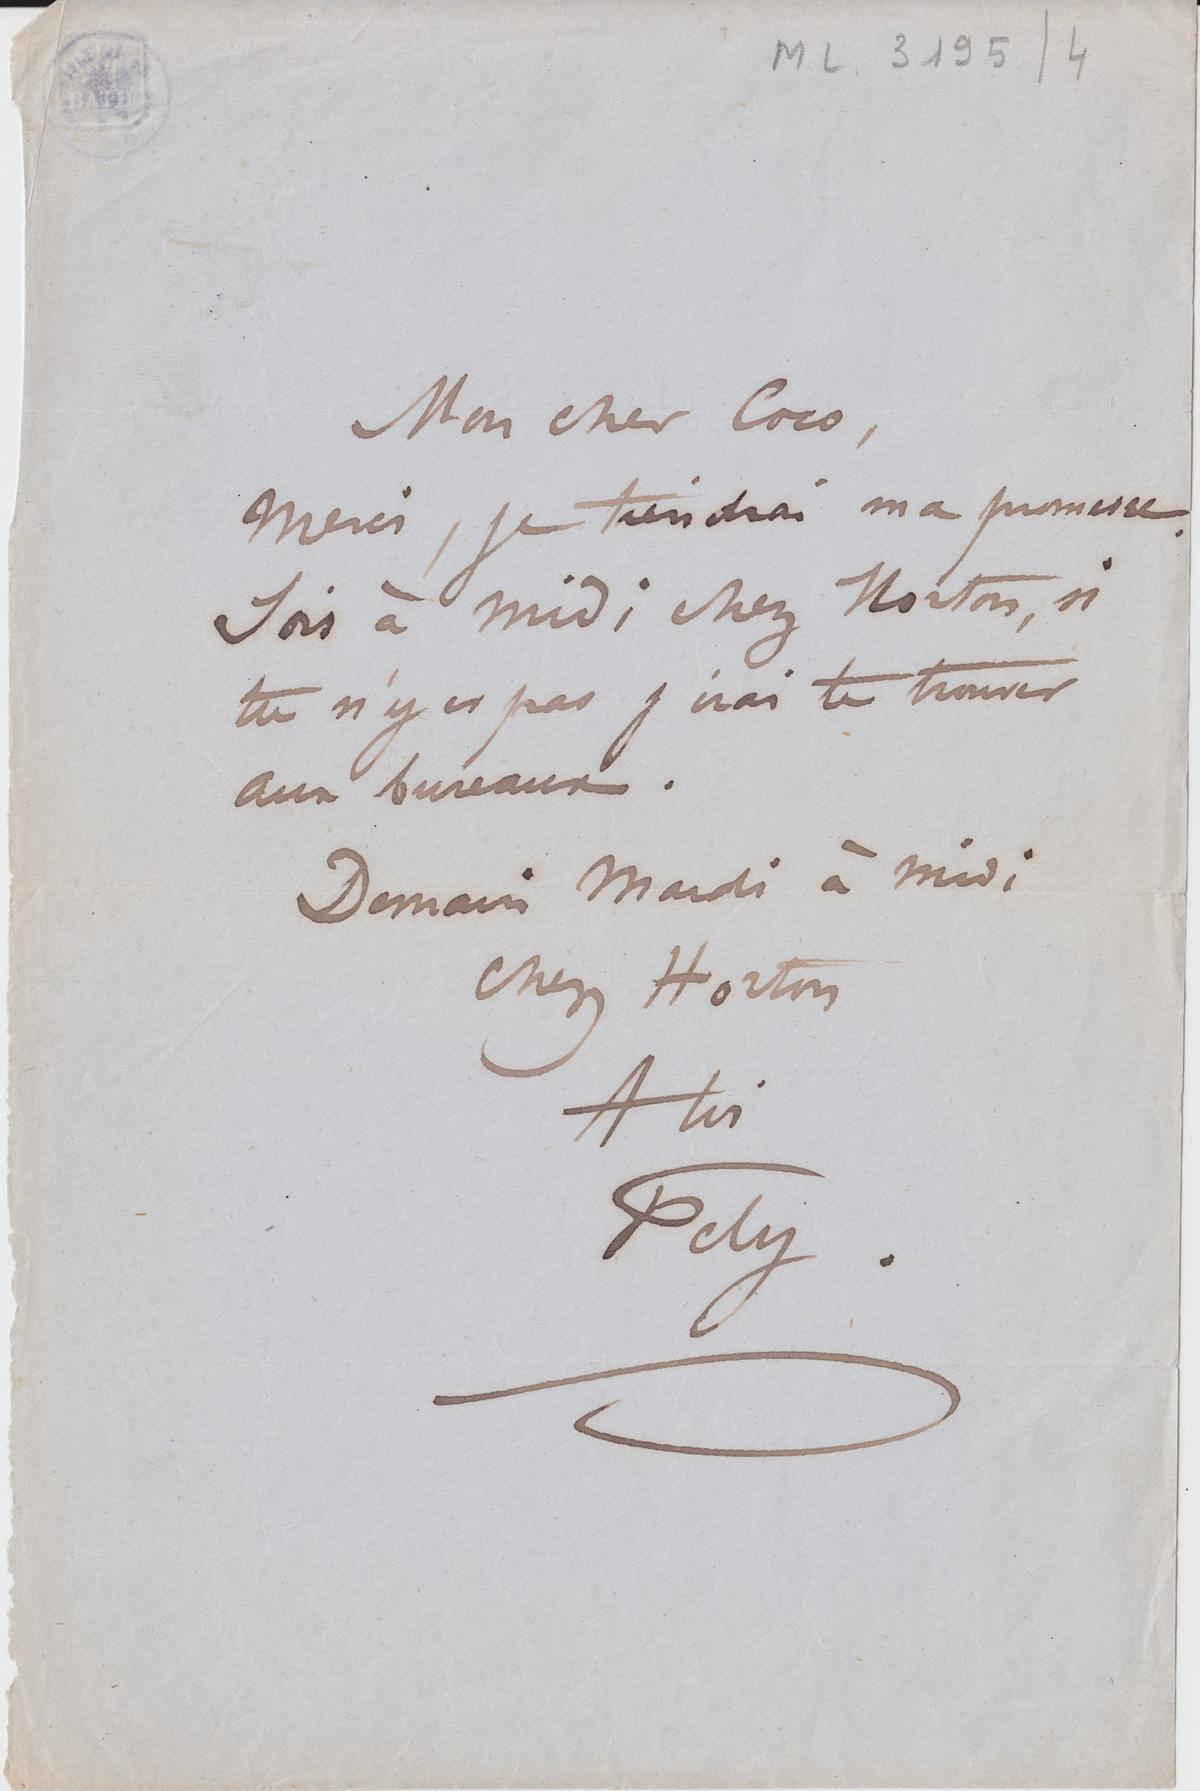 ML. 3195/4
Mon cher Coco,
Merci, je tiendrai ma promesse.
Sois à midi chez Horton, si
tu n'y es pas j'irai te trouver
aux bureaux.
Demain Mardi à midi
chez Horton
A toi
Fély.